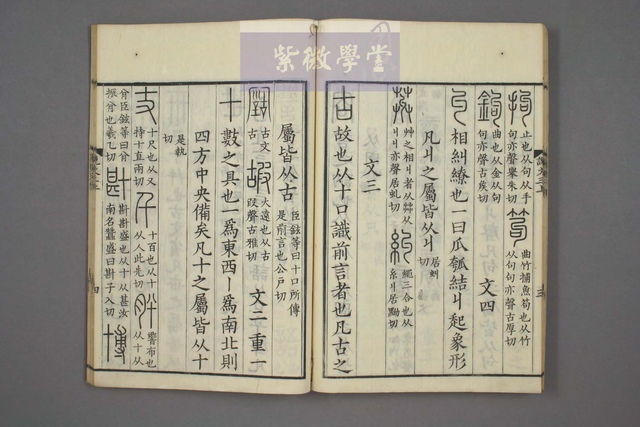 紫微學堂
拘 止也从句从手句亦聲舉朱切 笱 曲竹捕魚笱也从竹从句句亦聲古厚切
鉤 曲也从金从句句亦聲古矦切 文四
丩 相糾繚也一曰瓜瓠結丩起象形
凡丩之屬皆从丩 居虯切
茻 艸之相丩者从茻从丩丩亦聲居虯切 糾 繩三合也从糸丩居黝切
文三
古 故也从十口識前言者也凡古之
屬皆从古 臣鉉等曰十口所傳是前言也公戸切
古文古 嘏 大遠也从古叚聲古雅切 文二 重一
十 數之具也一爲東西丨爲南北則
四方中央備矣凡十之屬皆从十
是執切
丈 十尺也从又持十直兩切 千 十百也从十从人此先切 肸 響布也从十从
臣鉉等曰振肸也羲乙切 卙 卙卙盛也从十从甚汝南名蠶盛曰卙子入切 博